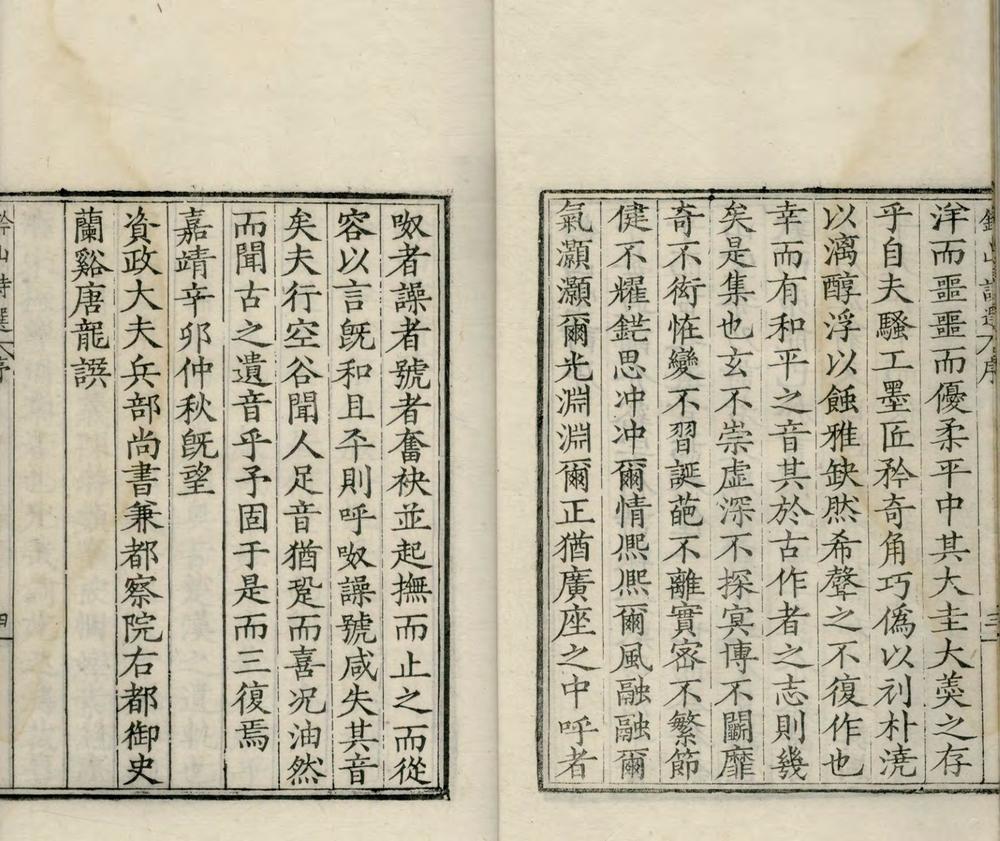 鈐山詩選序
三
洋而噩噩而優柔平中其大圭大羹之存
乎自夫騷工墨匠矜奇角巧僞以刓朴澆
以漓醇浮以蝕雅缺然希聲之不復作也
幸而有和平之音其於古作者之志則幾
矣是集也玄不崇虛深不探冥博不鬭靡
奇不衒恠變不習誕葩不離實密不繁節
健不耀鋩思冲冲爾情熈熈爾風融融爾
氣灝灝爾光淵淵爾正猶廣座之中呼者
呶者譟者號者奮袂並起撫而止之而從
容以言旣和且平則呼呶譟號咸失其音
矣夫行空谷聞人足音猶跫而喜况油然
而聞古之遺音乎予固于是而三復焉
嘉靖辛卯仲秋旣望
資政大夫兵部尚書兼都察院右都御史
蘭谿唐龍譔
鈐山詩選序
四